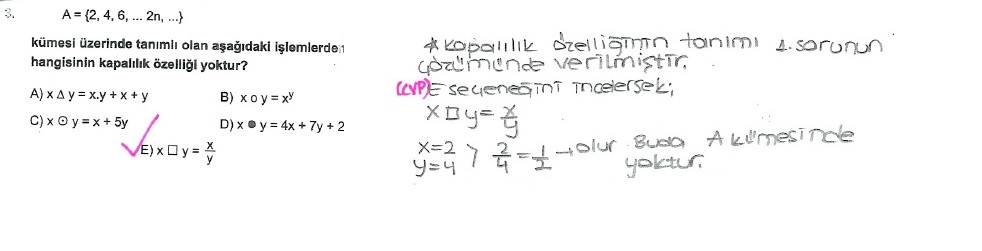 3. A = {2, 4, 6, ... 2n, ...}
kümesi üzerinde tanımlı olan aşağıdaki işlemlerden
hangisinin kapalılık özelliği yoktur?
A) x Δ y = x.y + x + y
B) x o y = xʸ
C) x ⊙ y = x + 5y
D) x ● y = 4x + 7y + 2
E) x □ y = x/y
* Kapalılık özelliğinin tanımı 1. sorunun
çözümünde verilmiştir.
(CVP) E seçeneğini incelersek;
x □ y = x/y
x=2
y=4 > 2/4 = 1/2 → olur Buda A kümesinde
yoktur.